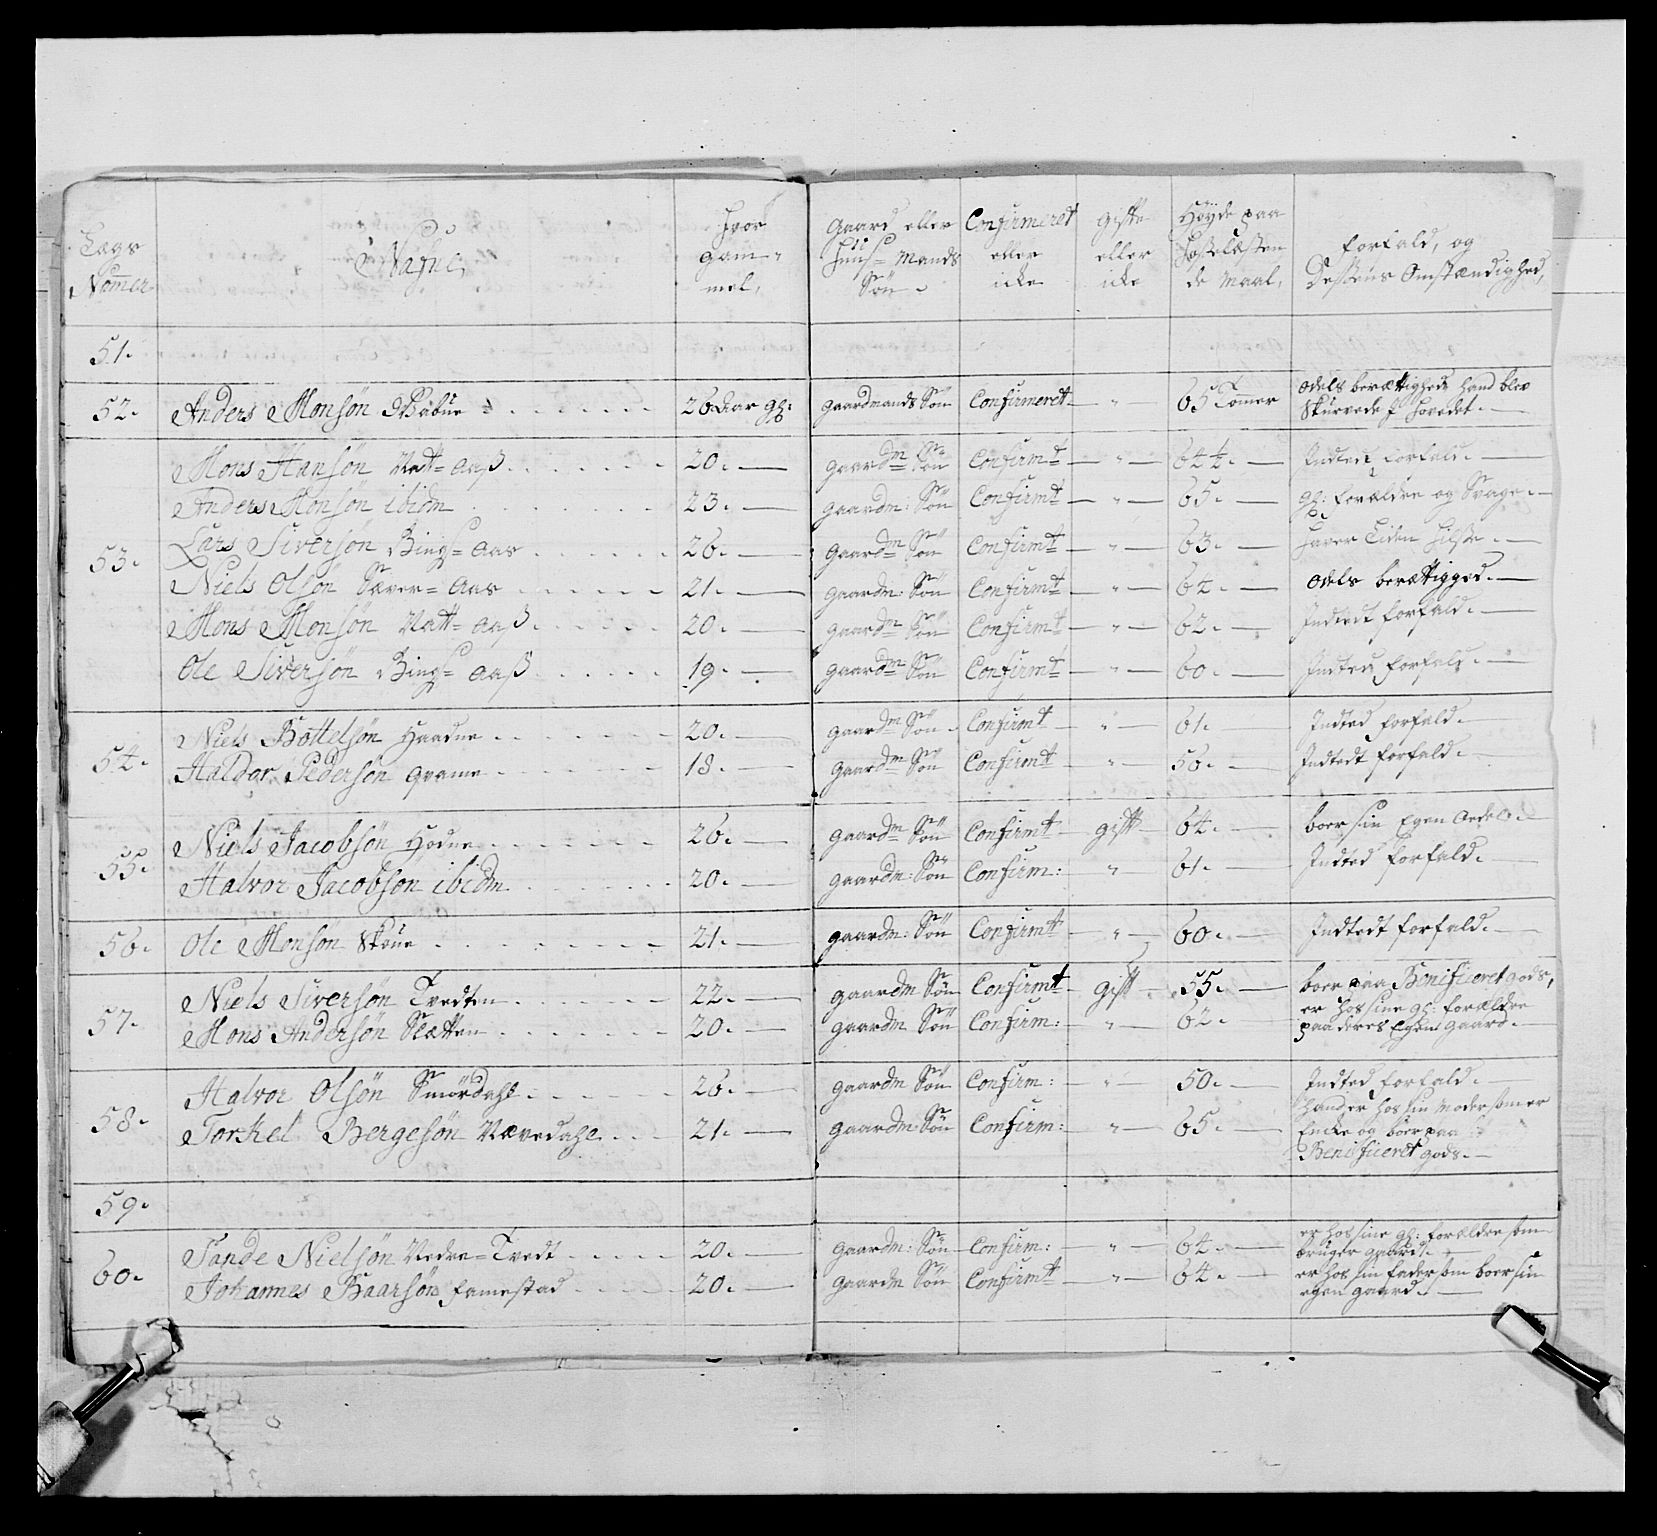 Lægs Nommer
Nafne,
Hvor gammel,
Gaard eller Huus-Mands Søn
Confirmeret eller icke
Gifte eller icke
Høyde paa Hoselæsten de Maal,
Forfald, og Dessens Omstændighed,
51.
52. Anders Monsøn 26 Aar gl: gaardmands Søn Confirmeret 65 Tommer Odels berættighed hand blev
Skurvede f hovedet.
53.
Mons Hansøn Natt-aaß 20. gaardm Søn Confirmt 64½. Indted forfald.
Anders Monsøn ibidm 23. gaardm: Søn Confirmt 65. gl: forældre og Svage.
Lars Siversøn Bings-Aas 26. gaardm Søn Confirmt 63. haver Liden hilse.
Niels Olsøn Sæver-Aas 21. gaardm: Søn Confirmt 64. Odels berættigged.
Mons Monsøn Natt-aaß 20. gaardm Søn Confirmt 62. Indtedt forfald.
Ole Siversøn Bings-aaß 19. gaardm: Søn Confirmt 60. Indted forfald.
54.
Niels Bottelsøn Haadne 20. gaardm Søn Confirmt 61. Indted forfald.
Haldor Pedersøn Qvame 18. gaardm Søn Confirmt 56. Indtedt forfald.
55.
Niels Jacobsøn Hodne 26. gaardm Søn Confirmt gift 64. boer sin Egen
Halvor Jacobsøn ibidm 20. gaardm: Søn Confirm: 61. Indted forfald.
56. Ole Monsøn Skoue 21. gaardm: Søn Confirmt 60. Indtedt forfald.
57.
Niels Siversøn Tvedten 22. gaardm Søn Confirmt gift 55. boer paa Benificeret gods,
Mons Andersøn Slætten 20. gaardm Søn Confirm: 62. er hos sine gl: forældre
paa deres Egen gaard.
58.
Halvor Olsøn Smördahl 26. gaardm Søn Confirm: 50. Indted forfald.
Torkel Bergesøn Nævedahl 21. gaardm Søn Confirm: 65. hand er hos sin Moder som er
Encke og boer paa
Benificeret gods.
59.
60.
Sande Nielsøn Nedre-Tvedt 20. gaardm: Søn Confirm: 64. er hos sine gl: forældre som
bruger gaard.
Johannes Baarsøn Famestad 20. gaardm Søn Confirmt 64. er hos sin fader som boer sin
egen gaard.